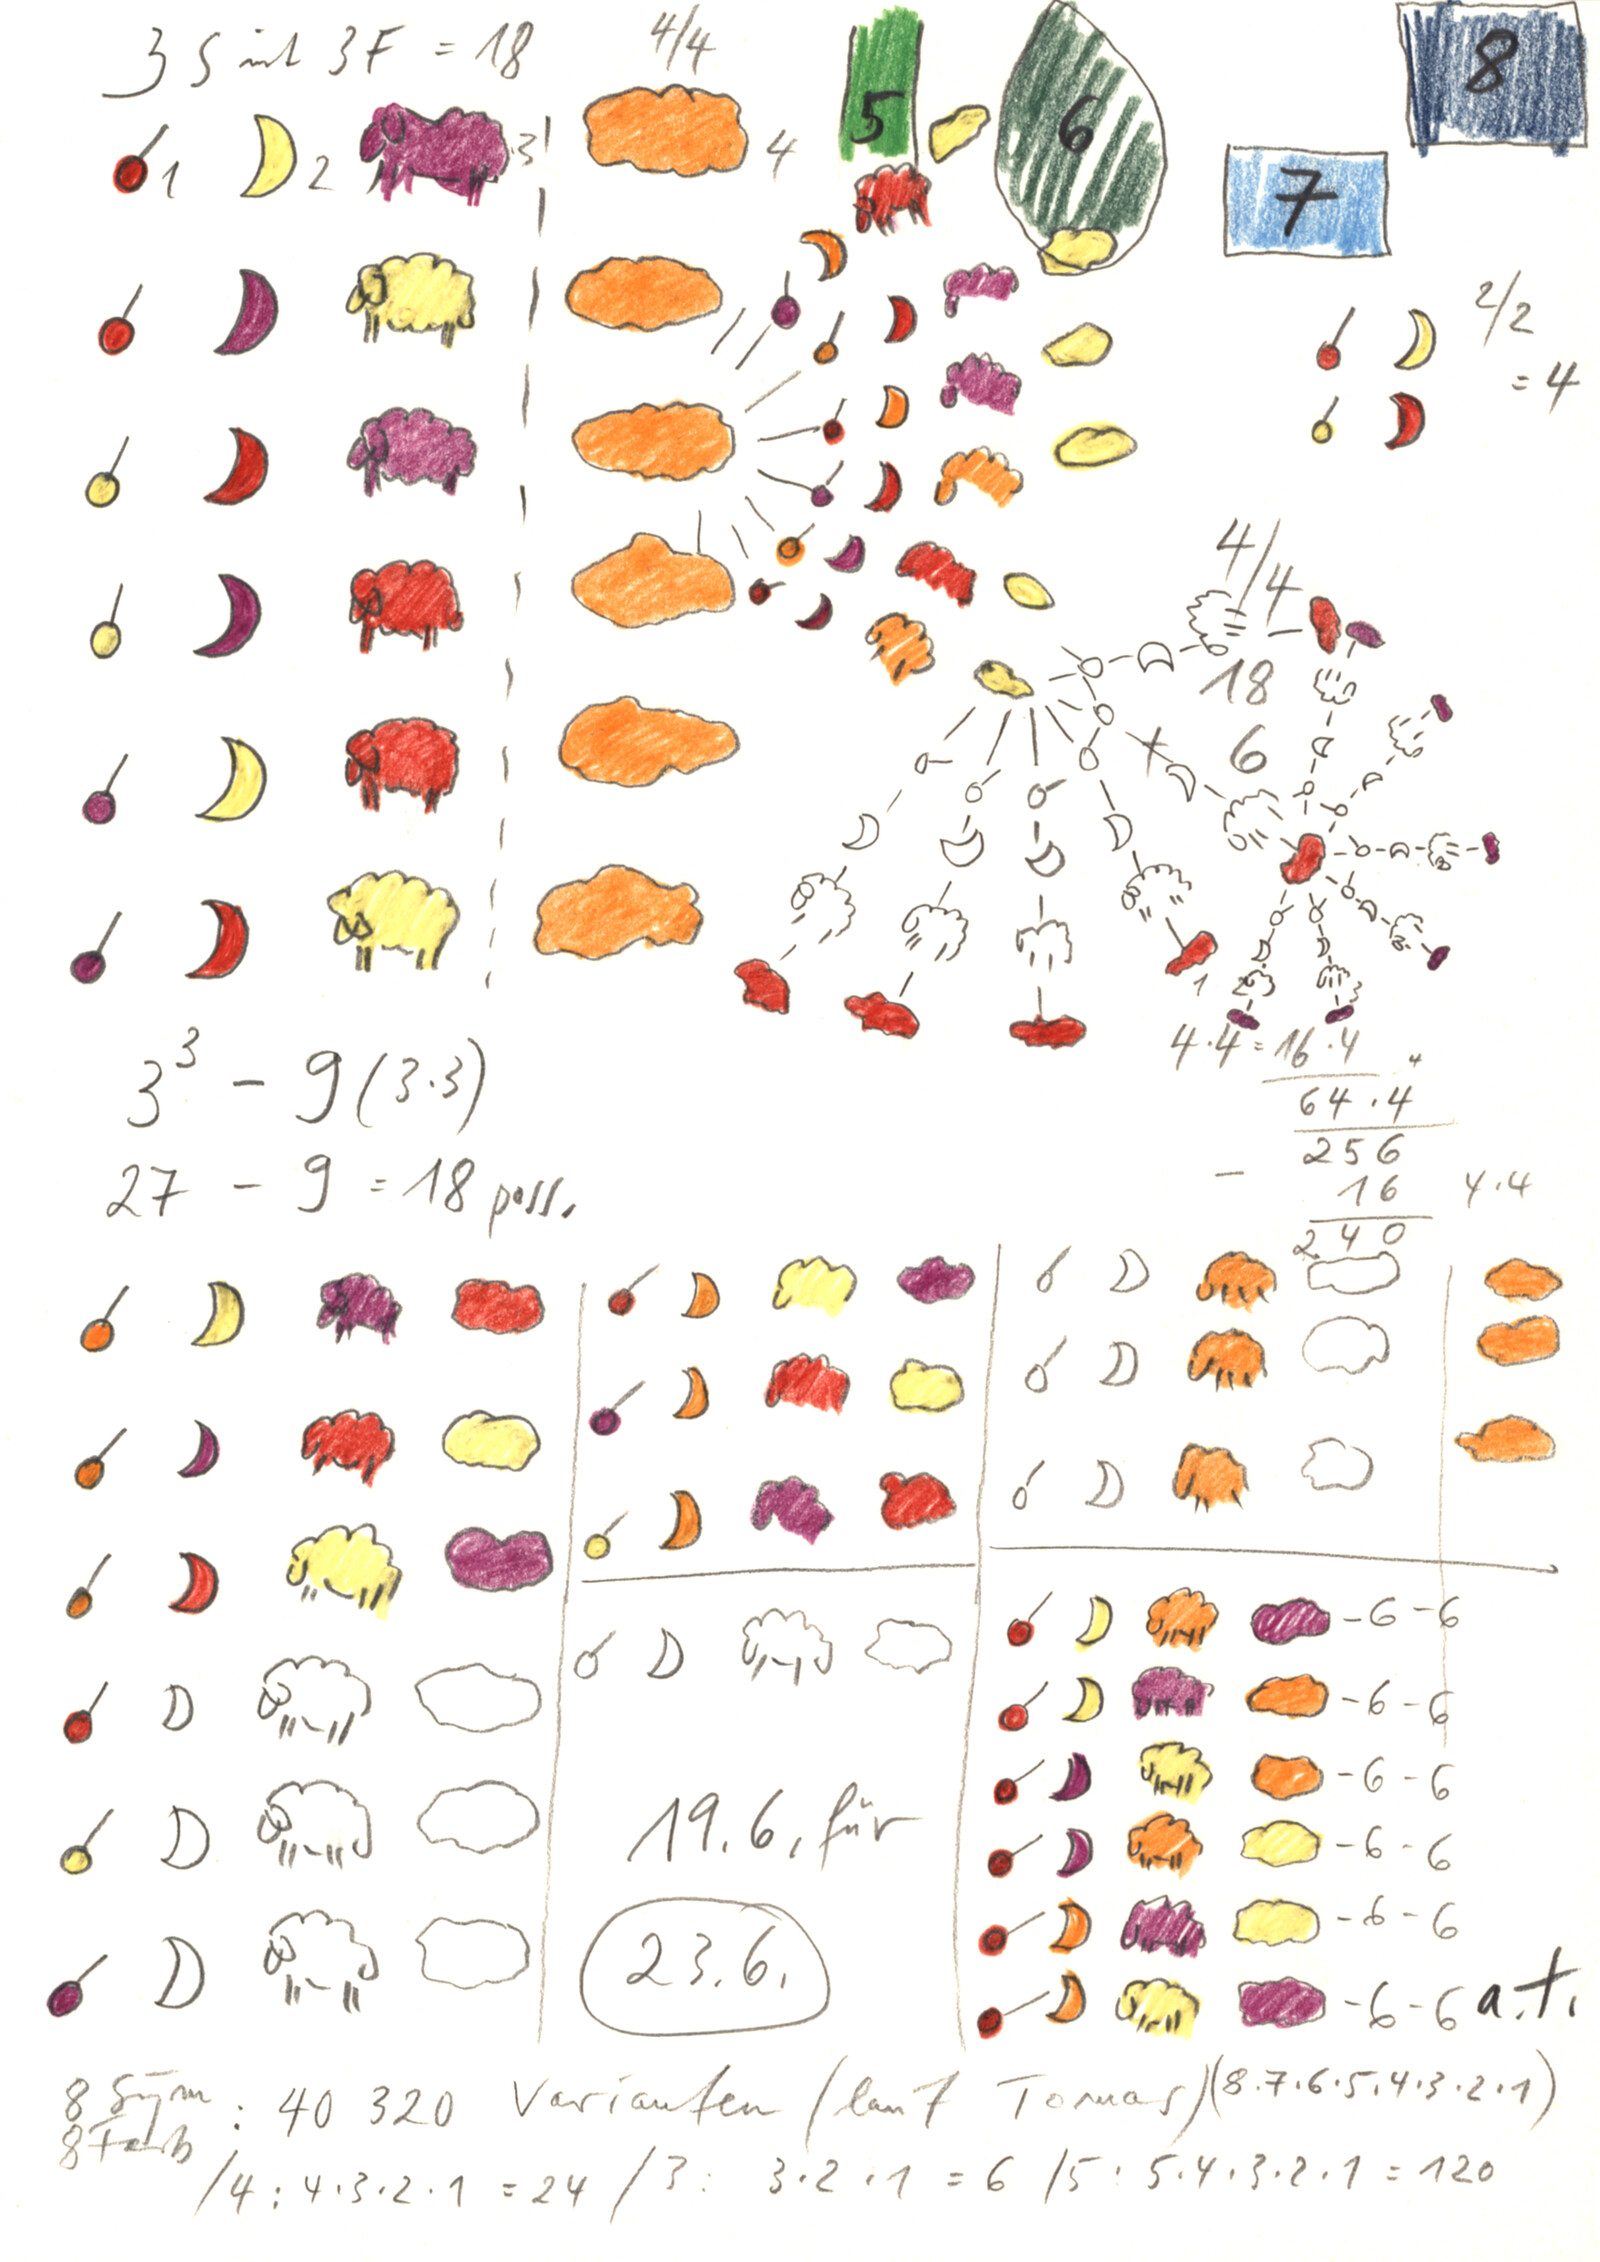 3 S mit 3F = 18
4/4
5
6
8
7
1 2 3 4
2/2
= 4
4/4
18
6
1 2
3³ - 9 (3·3)
27 - 9 = 18 poss.
4·4 = 16·4
64·4
256
- 16 4·4
240
19.6. für
23.6.
-6-6
-6-6
-6-6
-6-6
-6-6
-6-6 a.t.
8 Sym
8 Farb : 40 320 Varianten (laut Tomas) (8·7·6·5·4·3·2·1)
/4 : 4·3·2·1 = 24 /3 : 3·2·1 = 6 /5 : 5·4·3·2·1 = 120